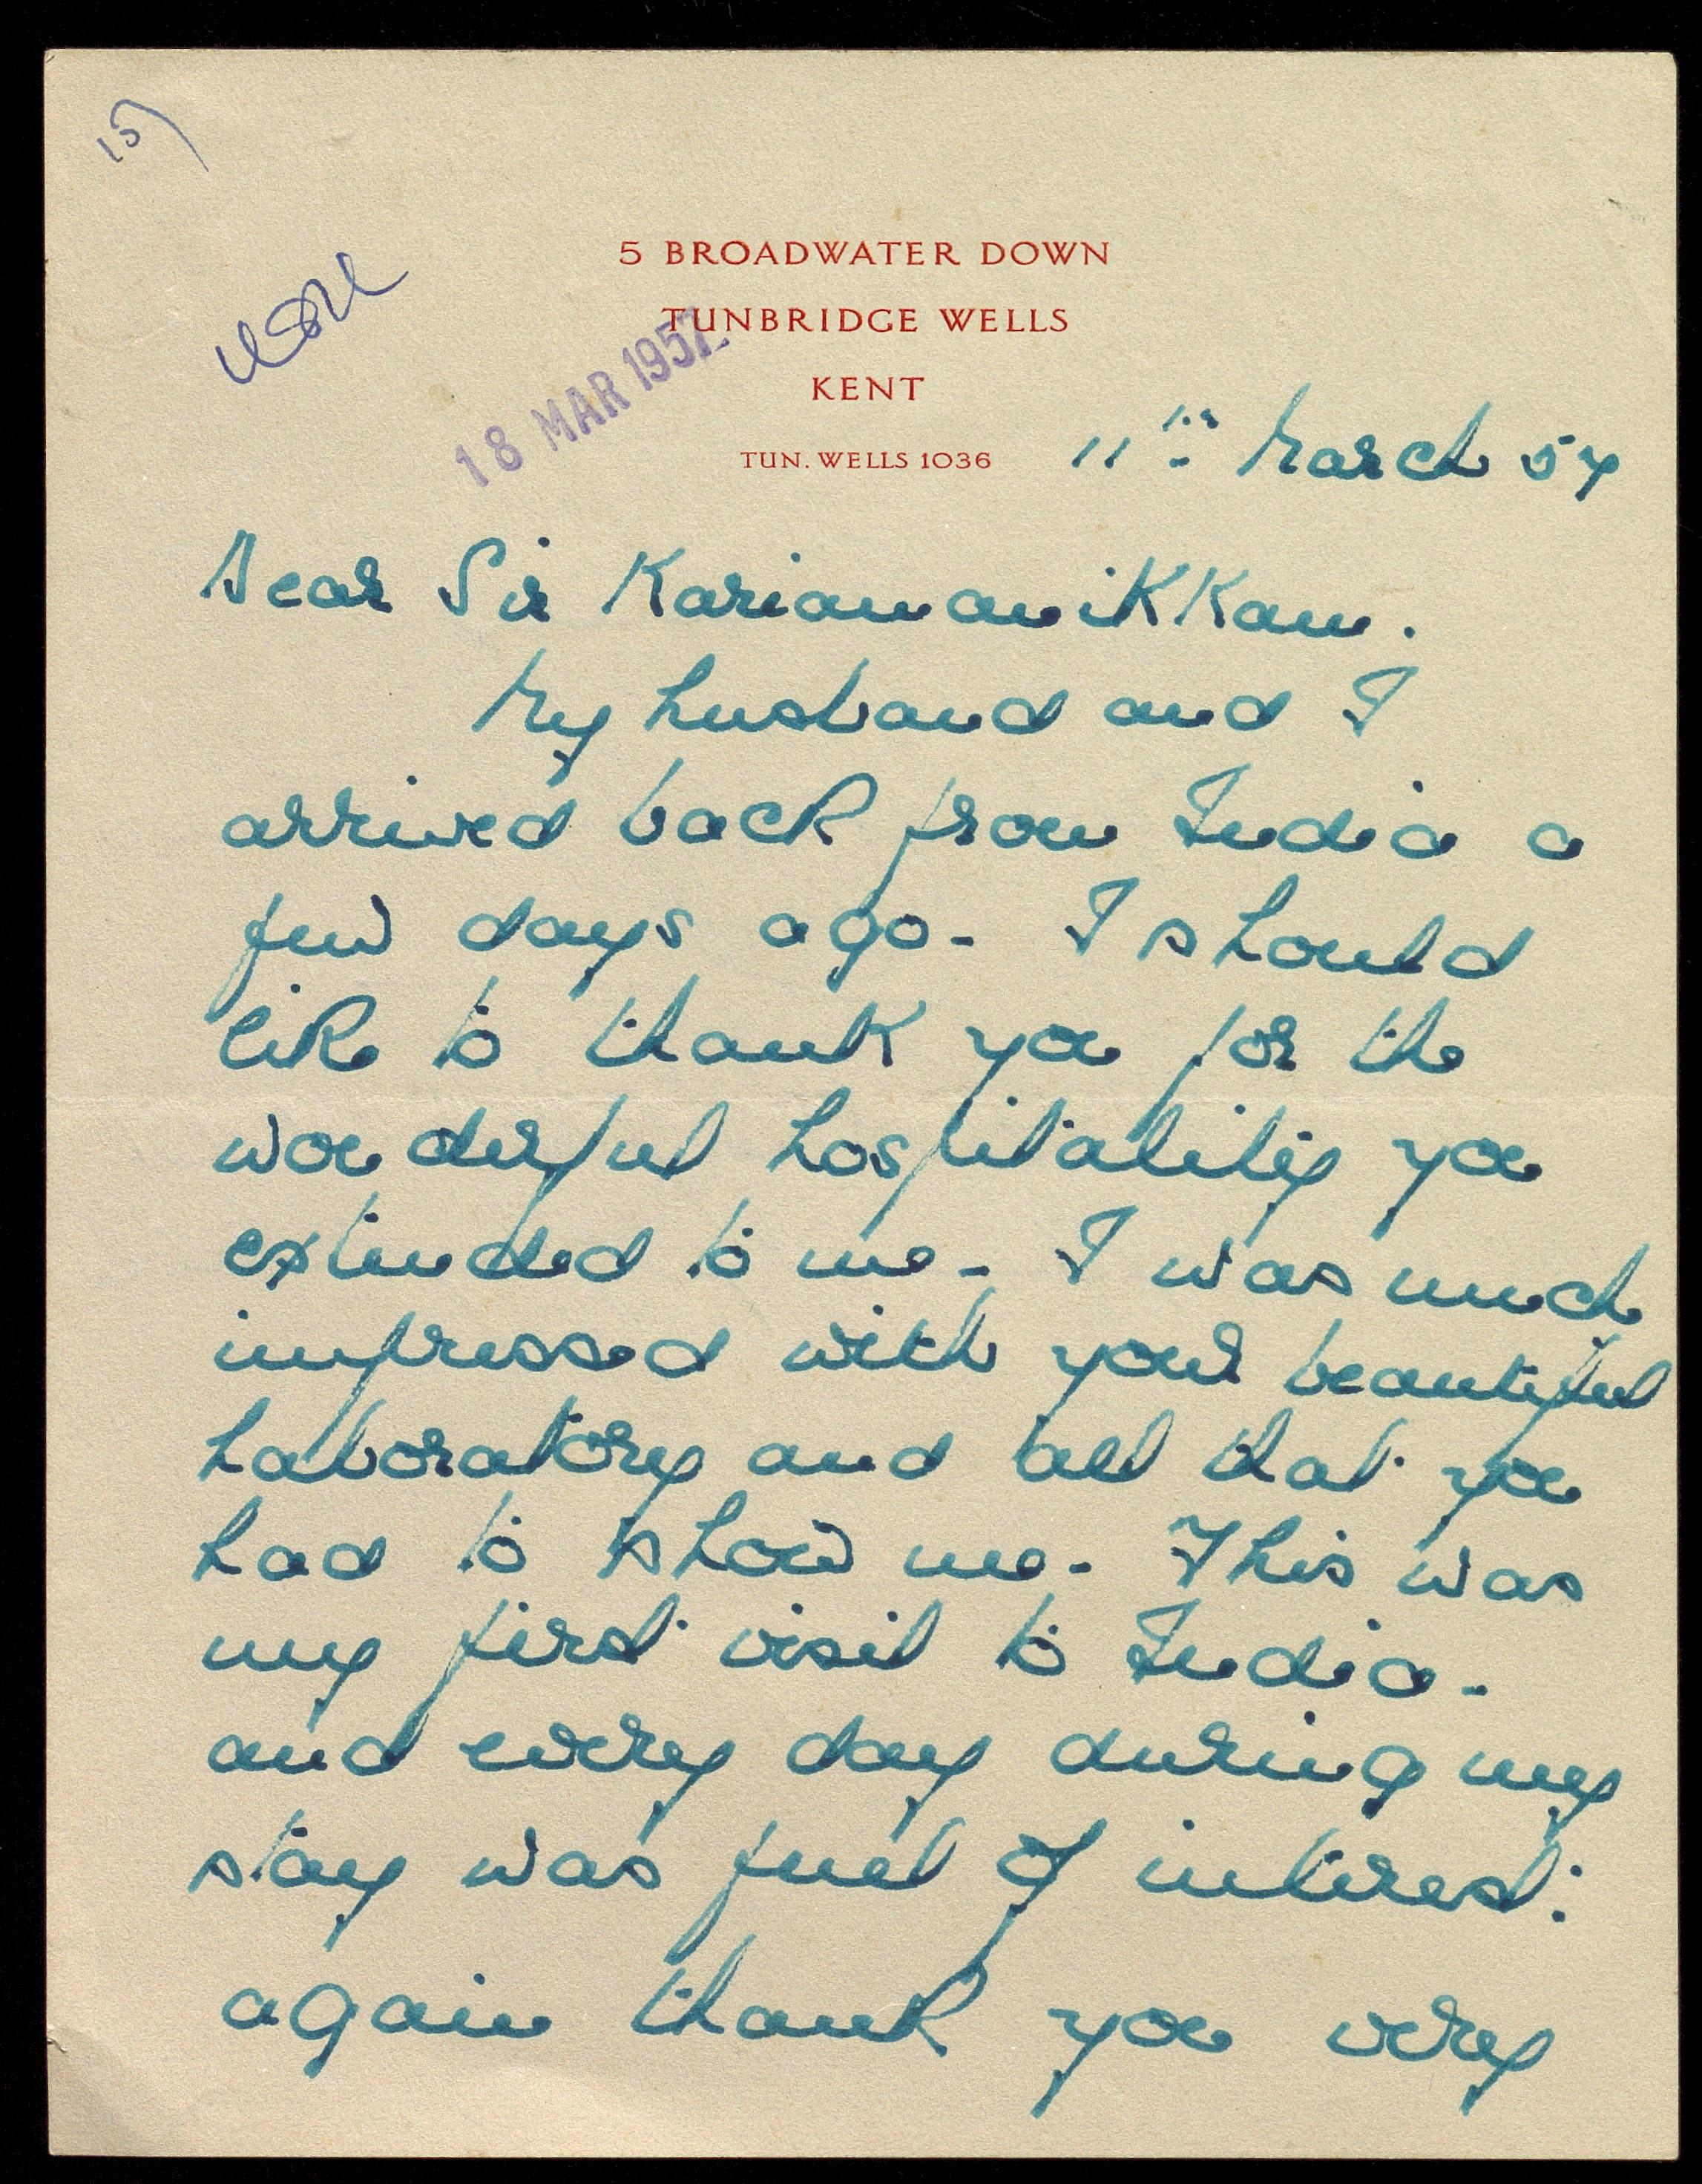 15)
5 BROADWATER DOWN
TUNBRIDGE WELLS
KENT
TUN. WELLS 1036
18 MAR 1957
11th March 57
Dear Sir KariamaniKKam.
My husband and I
arrived back from India a
few days ago - I should
like to thank you for the
wonderful hospitality you
extended to me - I was much
impressed with your beautiful
Laboratory and all that you
had to show me - This was
my first visit to India -
and every day during my
stay was full of interest:
again thank you very